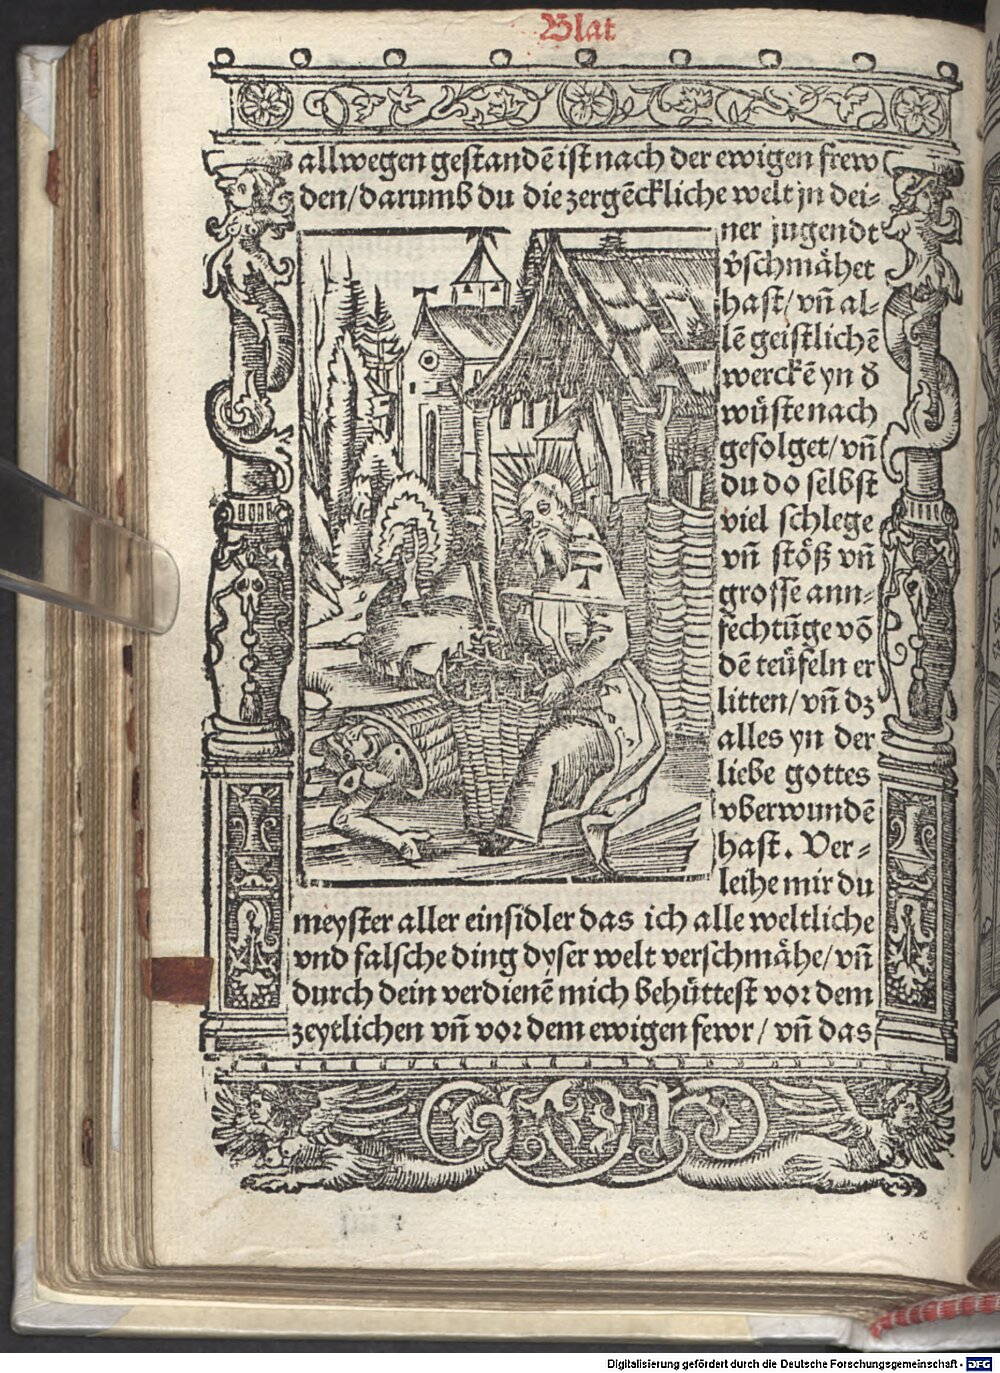 Blat
allwegen gestandē ist nach der ewigen frew
den/ darumb du die zergēckliche welt jn dei⸗
ner jugendt
v̄schmähet
hast/ vn̄ al⸗
lē geistlichē
werckē yn d̄
wüste nach
gefolget/ vn̄
du do selbst
viel schlege
vn̄ stöß vn̄
grosse ann⸗
fechtūge vō
dē teüfeln er
litten/ vn̄ dz
alles yn der
liebe gottes
vberwundē
hast. Ver⸗
leihe mir du
meyster aller einsidler das ich alle weltliche
vnd falsche ding dyser welt verschmähe/ vn̄
durch dein verdienē mich behüttest vor dem
zeytlichen vn̄ vor dem ewigen fewr/ vn̄ das
Digitalisierung gefördert durch die Deutsche Forschungsgemeinschaft - DFG